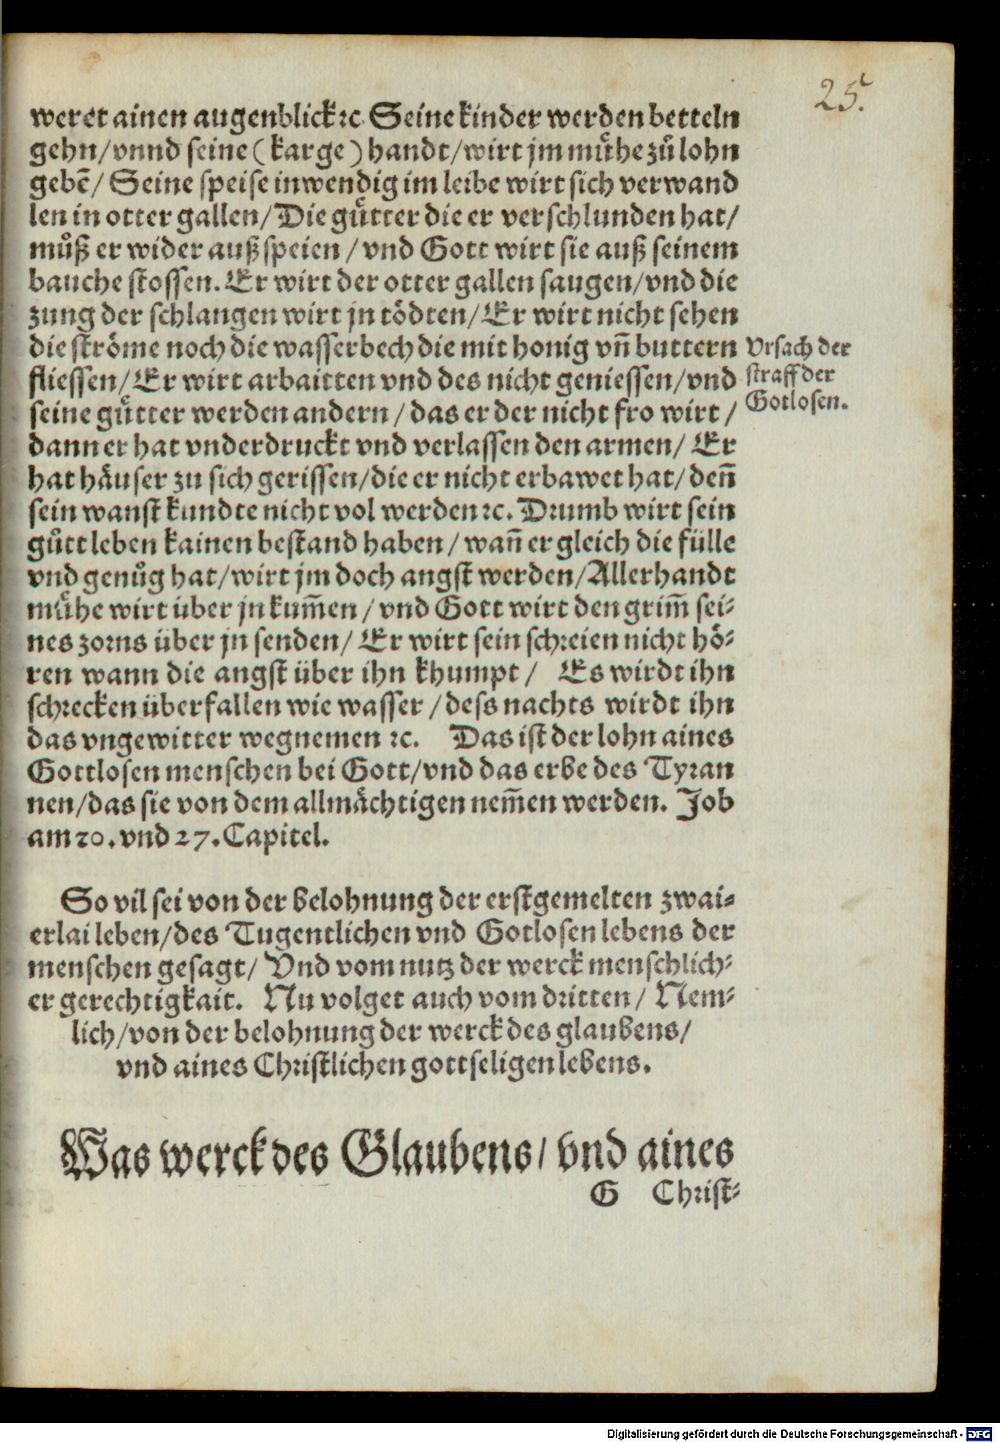 25.
weret ainen augenblick ꝛc. Seine kinder werden betteln
gehn/vnnd seine (karge) handt/wirt jm mühe zů lohn
gebē/ Seine speise inwendig im leibe wirt sich verwand
len in otter gallen/Die gütter die er verschlunden hat/
můß er wider auß speien/vnd Gott wirt sie auß seinem
bauche stossen. Er wirt der otter gallen saugen/vnd die
zung der schlangen wirt jn tödten/Er wirt nicht sehen
die ströme noch die wasserbech die mit honig vn̄ buttern
fliessen/Er wirt arbaitten vnd des nicht geniessen/vnd
seine gütter werden andern/das er der nicht fro wirt/
dann er hat vnderdruckt vnd verlassen den armen/ Er
hat häuser zu sich gerissen/die er nicht erbawet hat/den̄
sein wanst kundte nicht vol werden ꝛc. Drumb wirt sein
gůtt leben kainen bestand haben/wan̄ er gleich die fülle
vnd genůg hat/wirt jm doch angst werden/Allerhandt
mühe wirt über jn kum̄en/vnd Gott wirt den grim̄ sei-
nes zorns über jn senden/ Er wirt sein schreien nicht hö-
ren wann die angst über ihn khumpt/ Es wirdt ihn
schrecken überfallen wie wasser/dess nachts wirdt ihn
das vngewitter wegnemen ꝛc. Das ist der lohn aines
Gottlosen menschen bei Gott/vnd das erbe des Tyran
nen/das sie von dem allmächtigen nem̄en werden. Job
am 20. vnd 27. Capitel.
Vrsach der
straff der
Gotlosen.
So vil sei von der belohnung der erstgemelten zwai-
erlai leben/des Tugentlichen vnd Gotlosen lebens der
menschen gesagt/ Vnd vom nutz der werck menschlich-
er gerechtigkait. Nu volget auch vom dritten/ Nem-
lich/von der belohnung der werck des glaubens/
vnd aines Christlichen gottseligen lebens.
Was werck des Glaubens/ vnd aines
G Christ-
Digitalisierung gefördert durch die Deutsche Forschungsgemeinschaft - DFG